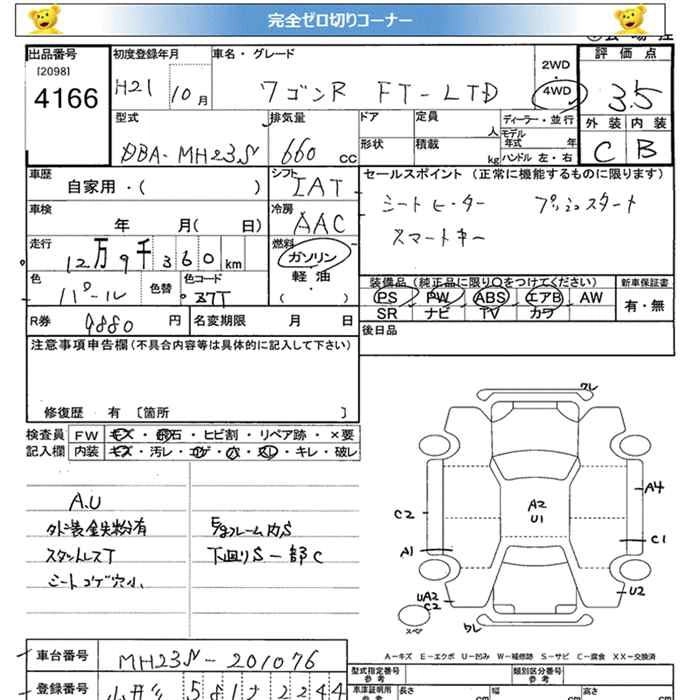 完全ゼロ切りコーナー
出品番号 初度登録年月 車名・グレード 評価点
[2098]
4166 H21 10月 ワゴンR FT-LTD 2WD 4WD 3.5
型式 排気量 ドア 定員 人 ディーラー・並行 外装 内装
DBA-MH23S 660 cc 形状 積載 kg モデル年式 年 ハンドル 左・右 C B
車歴 シフト セールスポイント(正常に機能するものに限ります)
自家用・( ) IAT シートヒーター プッシュスタート
車検 冷房
年 月( 日) AAC スマートキー
走行 燃料
12万9千360km ガソリン
軽・油
( )
色 色替 色コード 装備品(純正品に限り〇をつけてください) 新車保証書
パール 37T PS PW ABS エアB AW 有・無
SR ナビ TV カワ
R券 9880 円 名変期限 月 日 後日品
注意事項申告欄(不具合内容等は具体的に記入して下さい)
修復歴 有 〔箇所 〕
検査員 FW キズ・飛石・ヒビ割・リペア跡・×要
記入欄 内装 キズ・汚レ・コゲ・穴・スレ・キレ・破レ
A.U
外装鉄粉有 E/gフレーム内S
スタットレスT 下廻りS一部C
シートコゲ穴小
ワレ
A4
C2 A2
U1
A1 C1
UA2
C2 U2
スペア ワレ
A-キズ E-エクボ U-凹み W-補修跡 S-サビ C-腐食 XX-交換済
車台番号 MH23S-201076
型式指定番号 参考 類別区分番号 参考
登録番号 581 2244
車庫証明用 参考 長さ cm 幅 cm 高さ cm